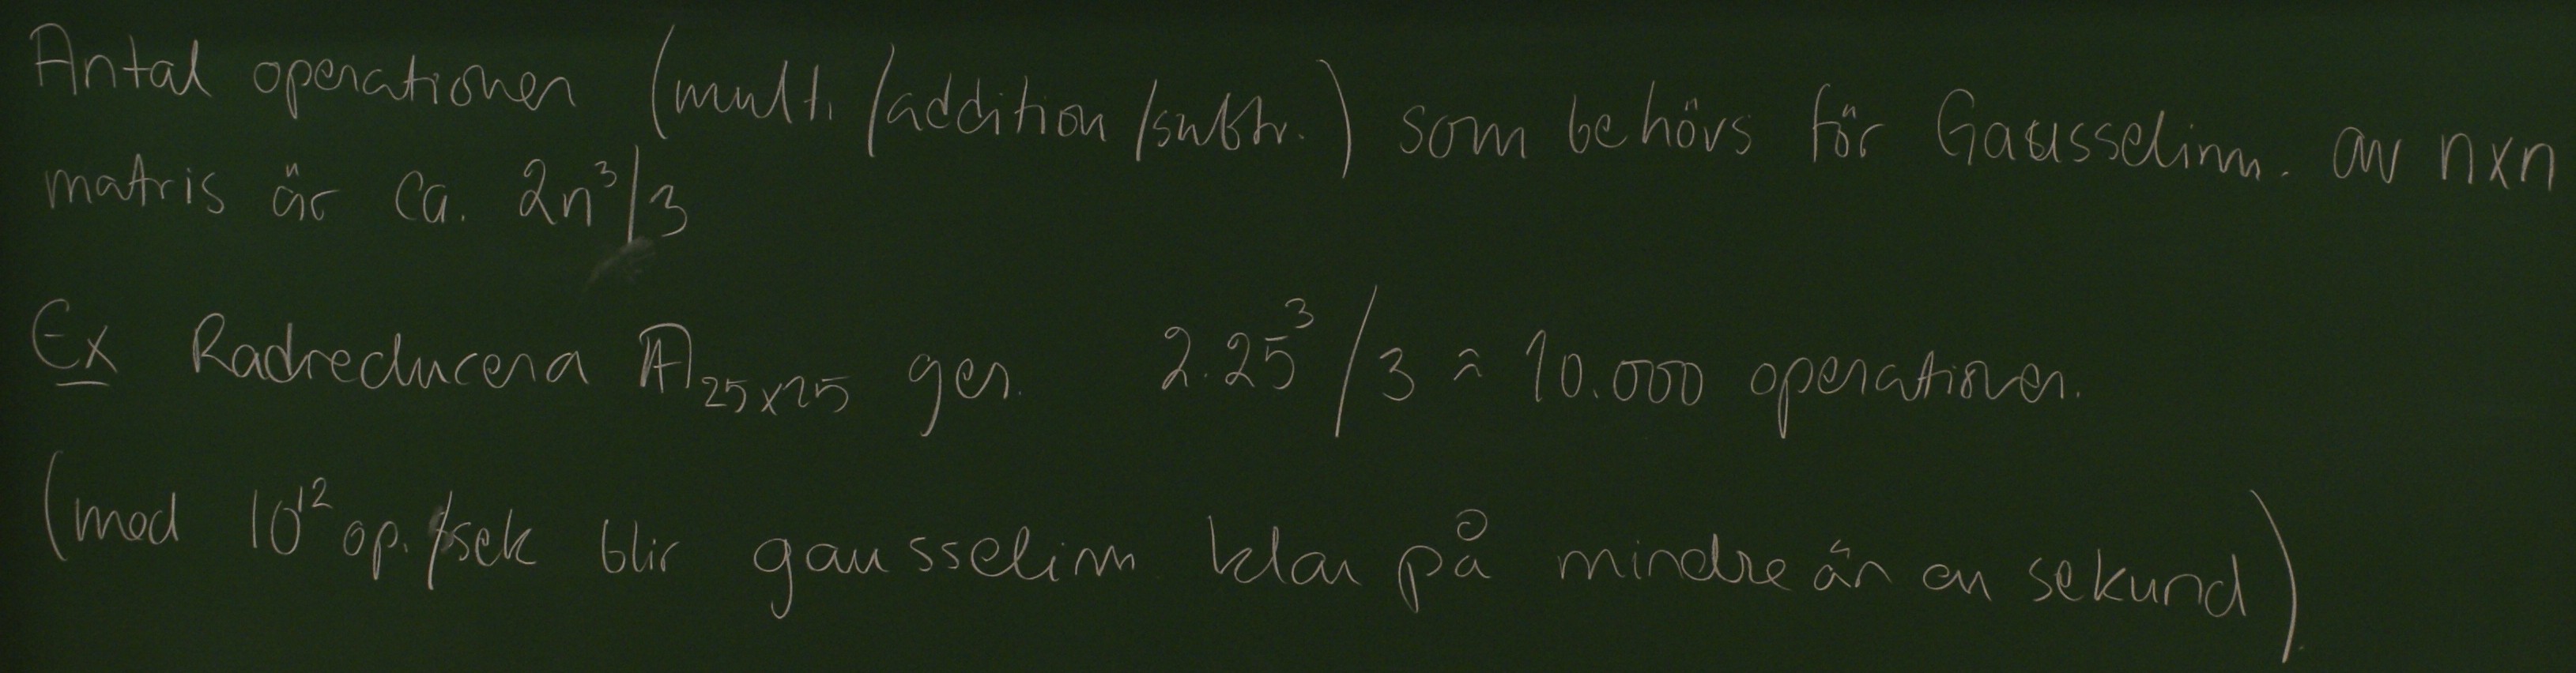 Antal operationer (mult. /addition /subtr.) som behövs för Gausselim. av n×n
matris är ca. 2n³/3
Ex Radreducera A₂₅ₓ₂₅ ger. 2·25³/3 ≈ 10.000 operationer.
(med 10¹² op./sek blir gausselim klar på mindre än en sekund).